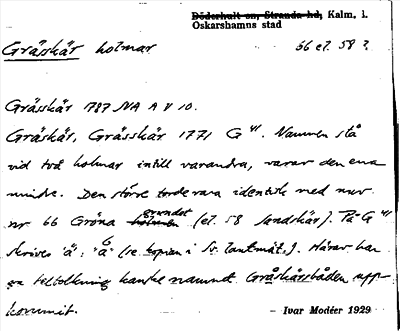 Döderhult sn, Stranda hd, Kalm. l.
Oskarshamns stad
Gråskär holmar 66 el. 58 ?
Grässkär 1787 NA A V 10.
Gråskär, Grässkär 1771 G 41. Namnen stå
vid två holmar intill varandra, varav den ena
mindre. Den större torde vara identisk med nuv.
nr 66 Gröna holmen grundet (el. 58 Sandskär). På G 41
skrives "ä": "å" (se kopian i Sv. lantmät.). Härav har
en feltolkning kanske namnet Gråskärsbåden upp-
kommit.
- Ivar Modéer 1929